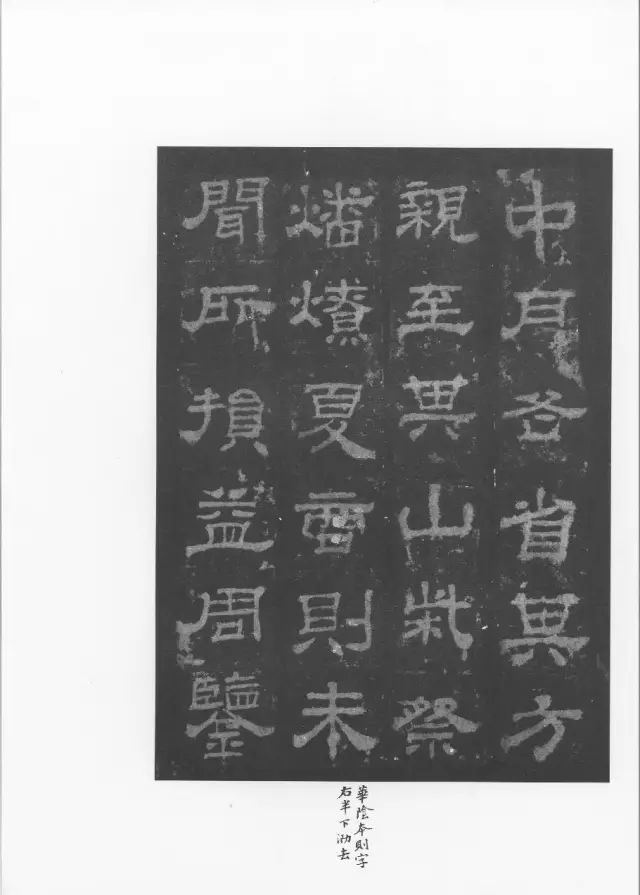 中月各省其方
親至其山柴祭
燔燎夏商則未
聞所損益周鑒
華陰本則字
右半下泐去